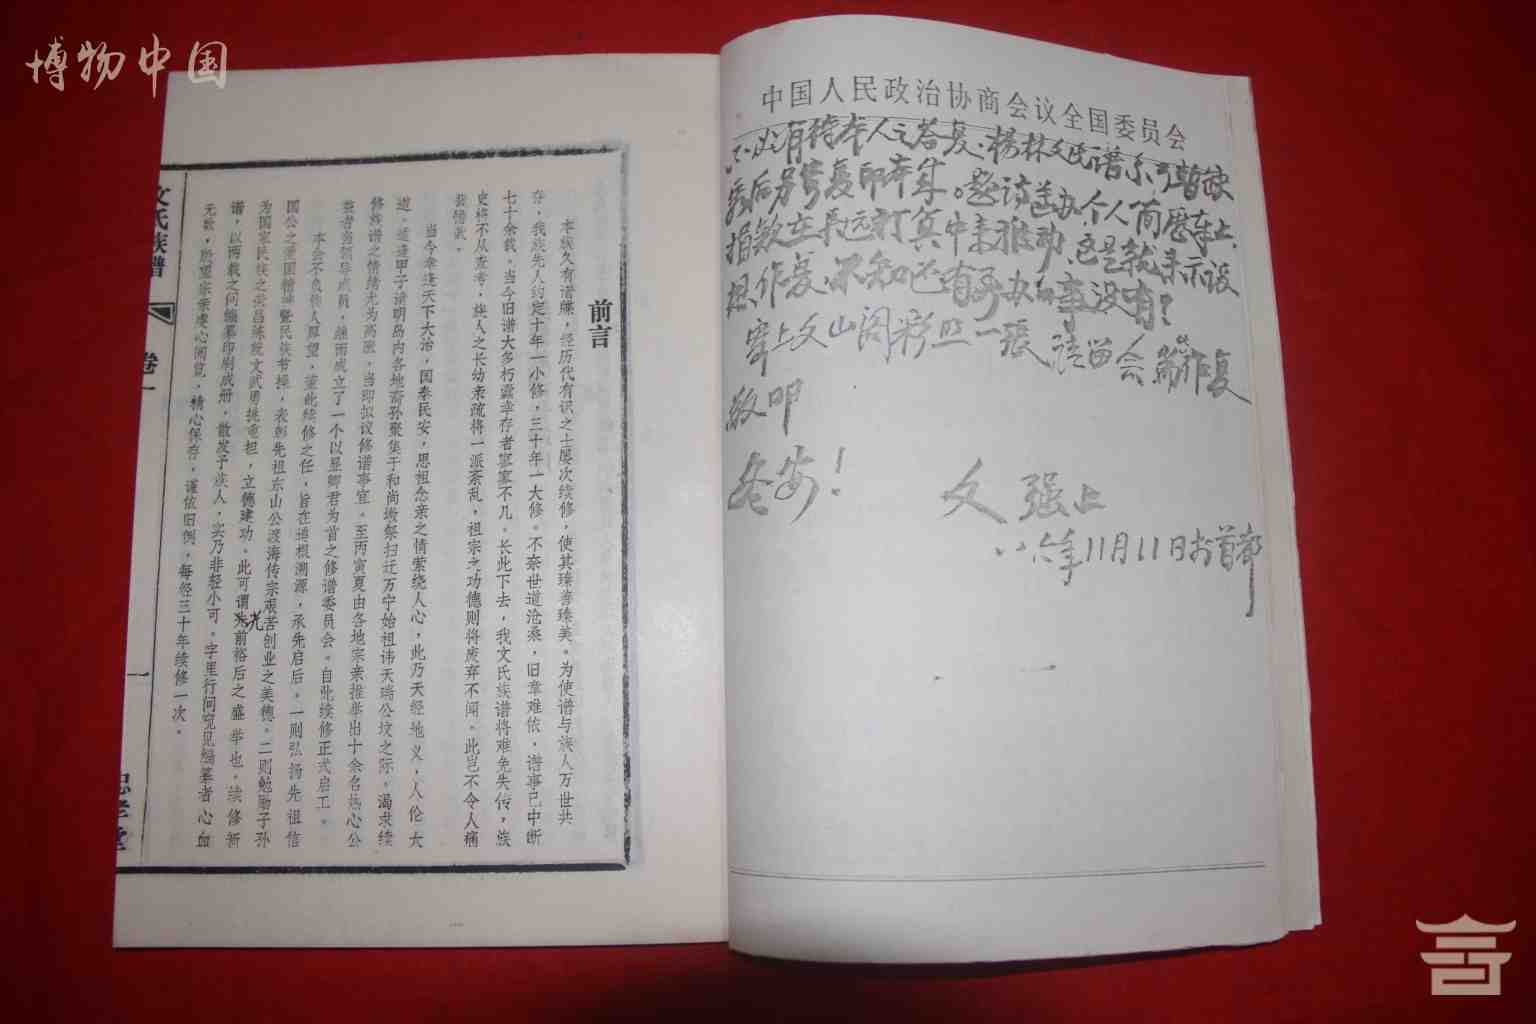 博物中国
中国人民政治协商会议全国委员会
还有待本人之答复。杨林文氏谱系可暂放
后另寄复印本来。
捐款在长远打算中来推动,这是就来示设
想作复。不知还有承办的事没有?
寄上文山阁彩照一张请留会
敬叩
冬安!
文强上
八六年11月11日于首都
前言
本族久有谱牒,经历代有识之士屡次续修,使其臻善臻美。为使谱与族人万世共
存,我族先人约定十年一小修,三十年一大修。不奈世道沧桑,旧章难依,谱事已中断
七十余载。当今旧谱大多朽蠹幸存者寥寥不几。长此下去,我文氏族谱将难免失传,族
史将不从查考,族人之长幼亲疏将一派紊乱,祖宗之功德则将废弃不闻。此岂不令人痛
装错哉。
当今幸逢天下大治,国泰民安,思祖念亲之情萦绕人心,此乃天经地义,人伦大
道。适逢甲子清明岛内各地裔孙聚集于和尚墩祭扫迁万宁始祖讳天瑞公坟之际。渴求续
修族谱之情绪尤为高涨,当即拟议修谱事宜。至丙寅夏由各地宗亲推举出十余名热心公
益者为领导成员,继而成立了一个以显卿君为首之修谱委员会。自此续修正式启工。
本会不负族人厚望,董此续修之任,旨在追根溯源,承先启后。一则弘扬先祖信
国公之爱国精神暨民族节操,表彰先祖东山公渡海传宗艰苦创业之美德。二则勉励子孙
为国家民族之荣昌练就文武勇挑重担,立德建功。此可谓光前裕后之盛举也。续修新
谱,以两载之间编纂印刷成册,散发予族人,实乃非轻小可。字里行间窥见编纂者心血
无数,盼望宗亲虔心阅览,精心保存,谨依旧例,每经三十年续修一次。
文氏族谱
卷一
一
忠孝堂